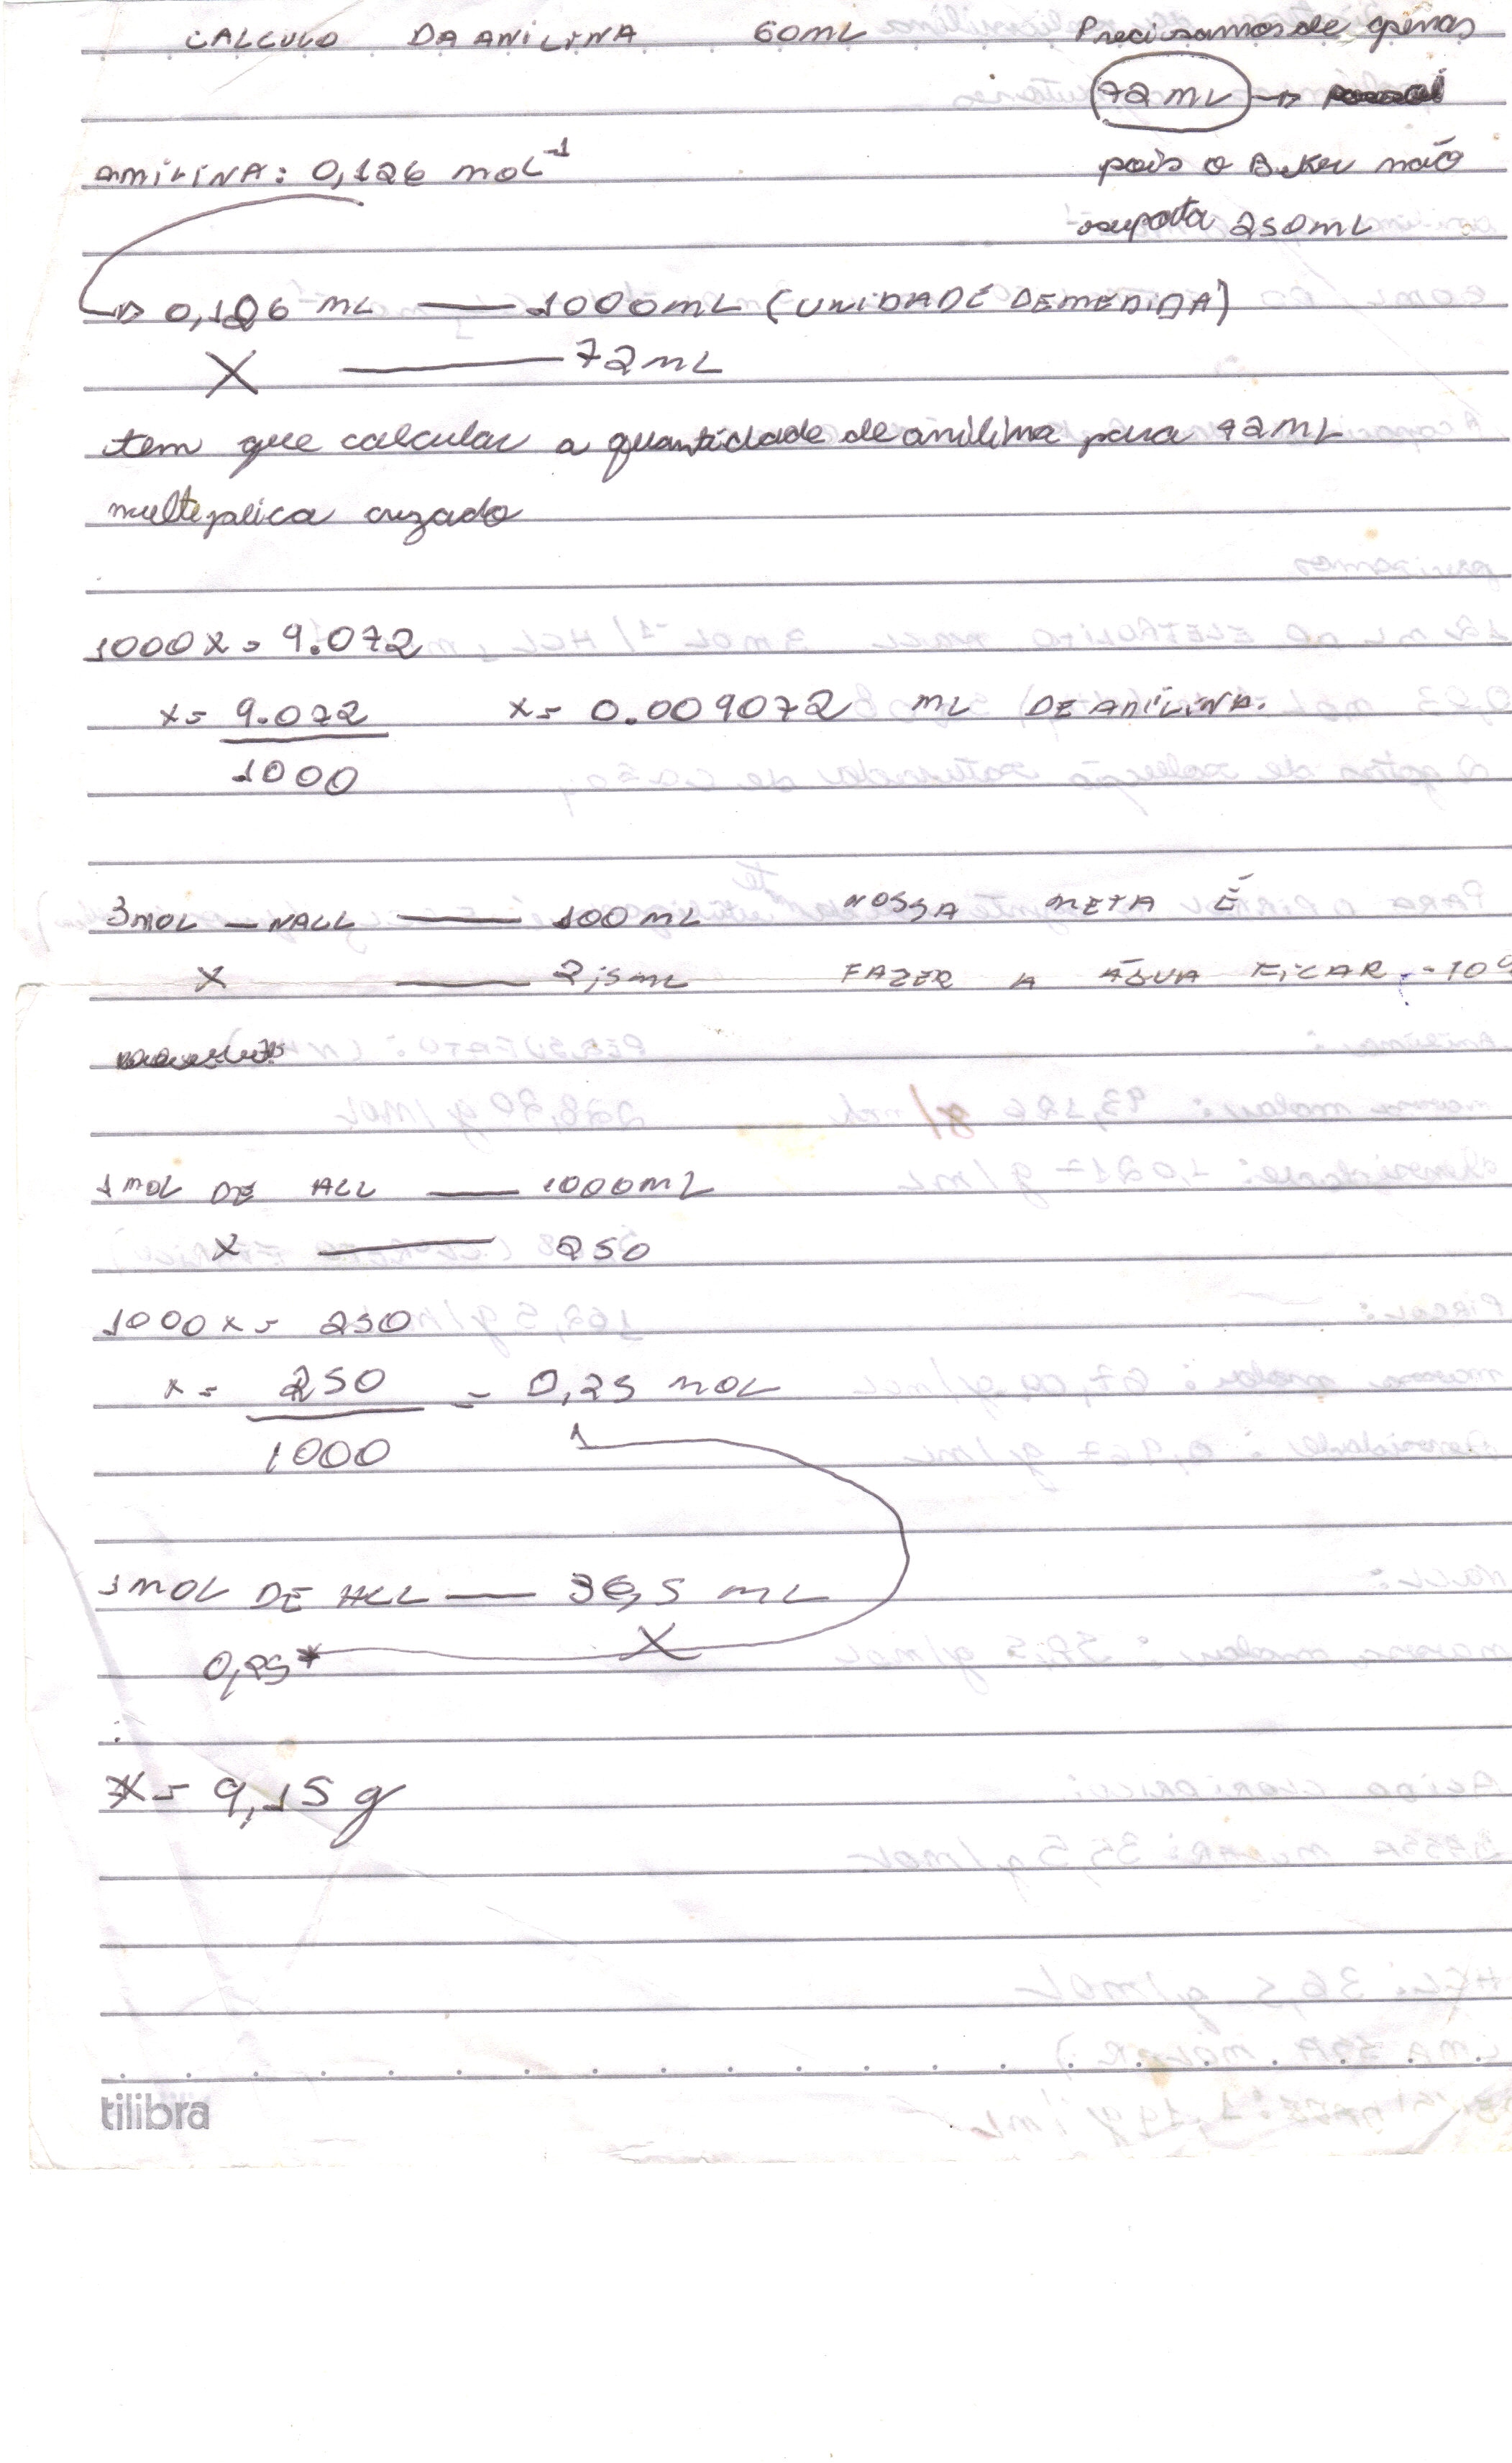 CALCULO DA ANILINA 60ML Precisamos de apenas
72 ML →
pois o Beker não
suporta 250ML
ANILINA: 0,126 MOL⁻¹
→ 0,126 ML — 1000ML (UNIDADE DE MEDIDA)
X — 72ML
tem que calcular a quantidade de anilina para 72ML
multiplica cruzado
1000X = 9.072
X = 9.072 X = 0.009072 ML DE ANILINA.
1000
3MOL — NACL — 100ML NOSSA META É
X — 2,5ML FAZER A ÁGUA FICAR -10º
1MOL DE HCL — 1000ML
X — 250
1000X = 250
X = 250 = 0,25 MOL
1000
1MOL DE HCL — 36,5 ML
0,25* — X
X = 9,15g
tilibra